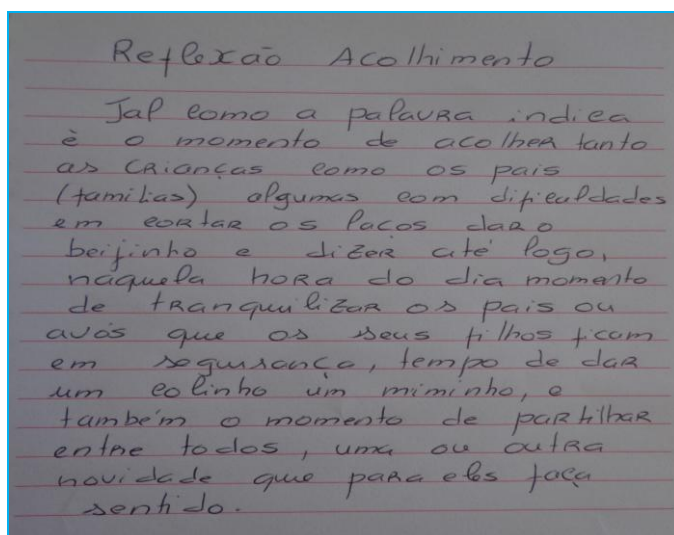 Reflexão Acolhimento
Tal como a palavra indica
è o momento de acolher tanto
as crianças como os pais
(familias) algumas com dificuldades
em cortar os lacos dar o
beijinho e dizer até logo,
naquela hora do dia momento
de tranquilizar os pais ou
avós que os seus filhos ficam
em segurança, tempo de dar
um colinho um miminho, e
também o momento de partilhar
entre todos, uma ou outra
novidade que para eles faça
sentido.